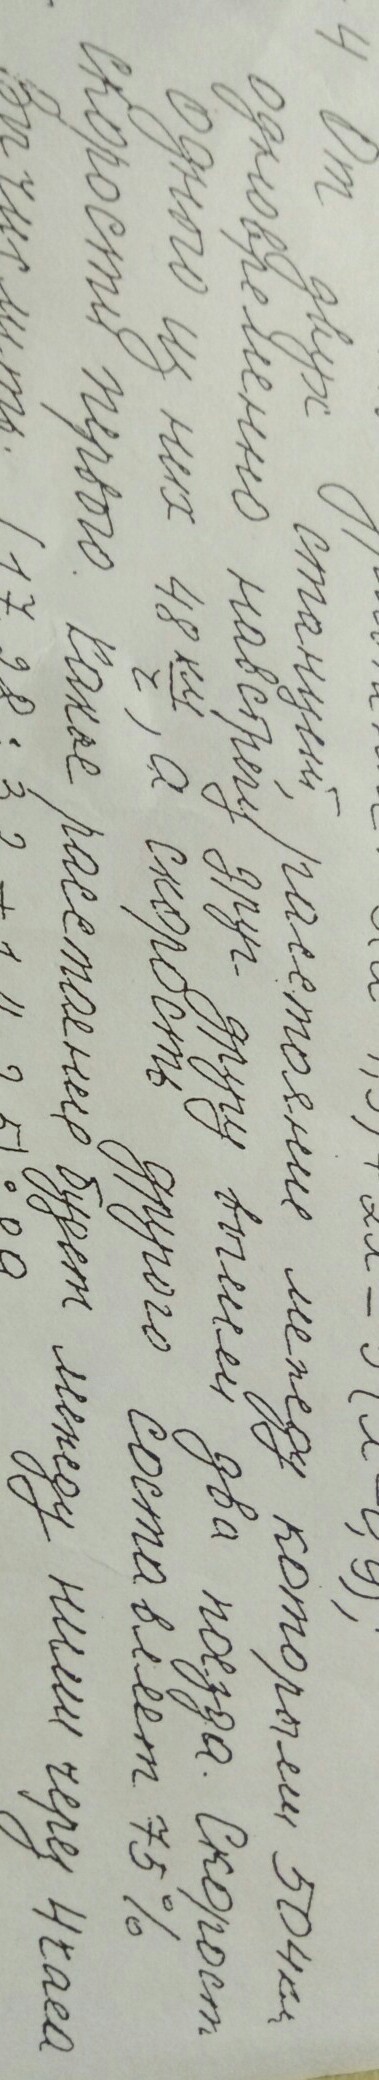 4 От двух станций, расстояние между которыми 504км
одновременно навстречу друг другу вышли два поезда. Скорост
одного из них 48 км/ч, а скорость другого составляет 75%
скорости первого. Какое расстояние будет между ними через 4 часа